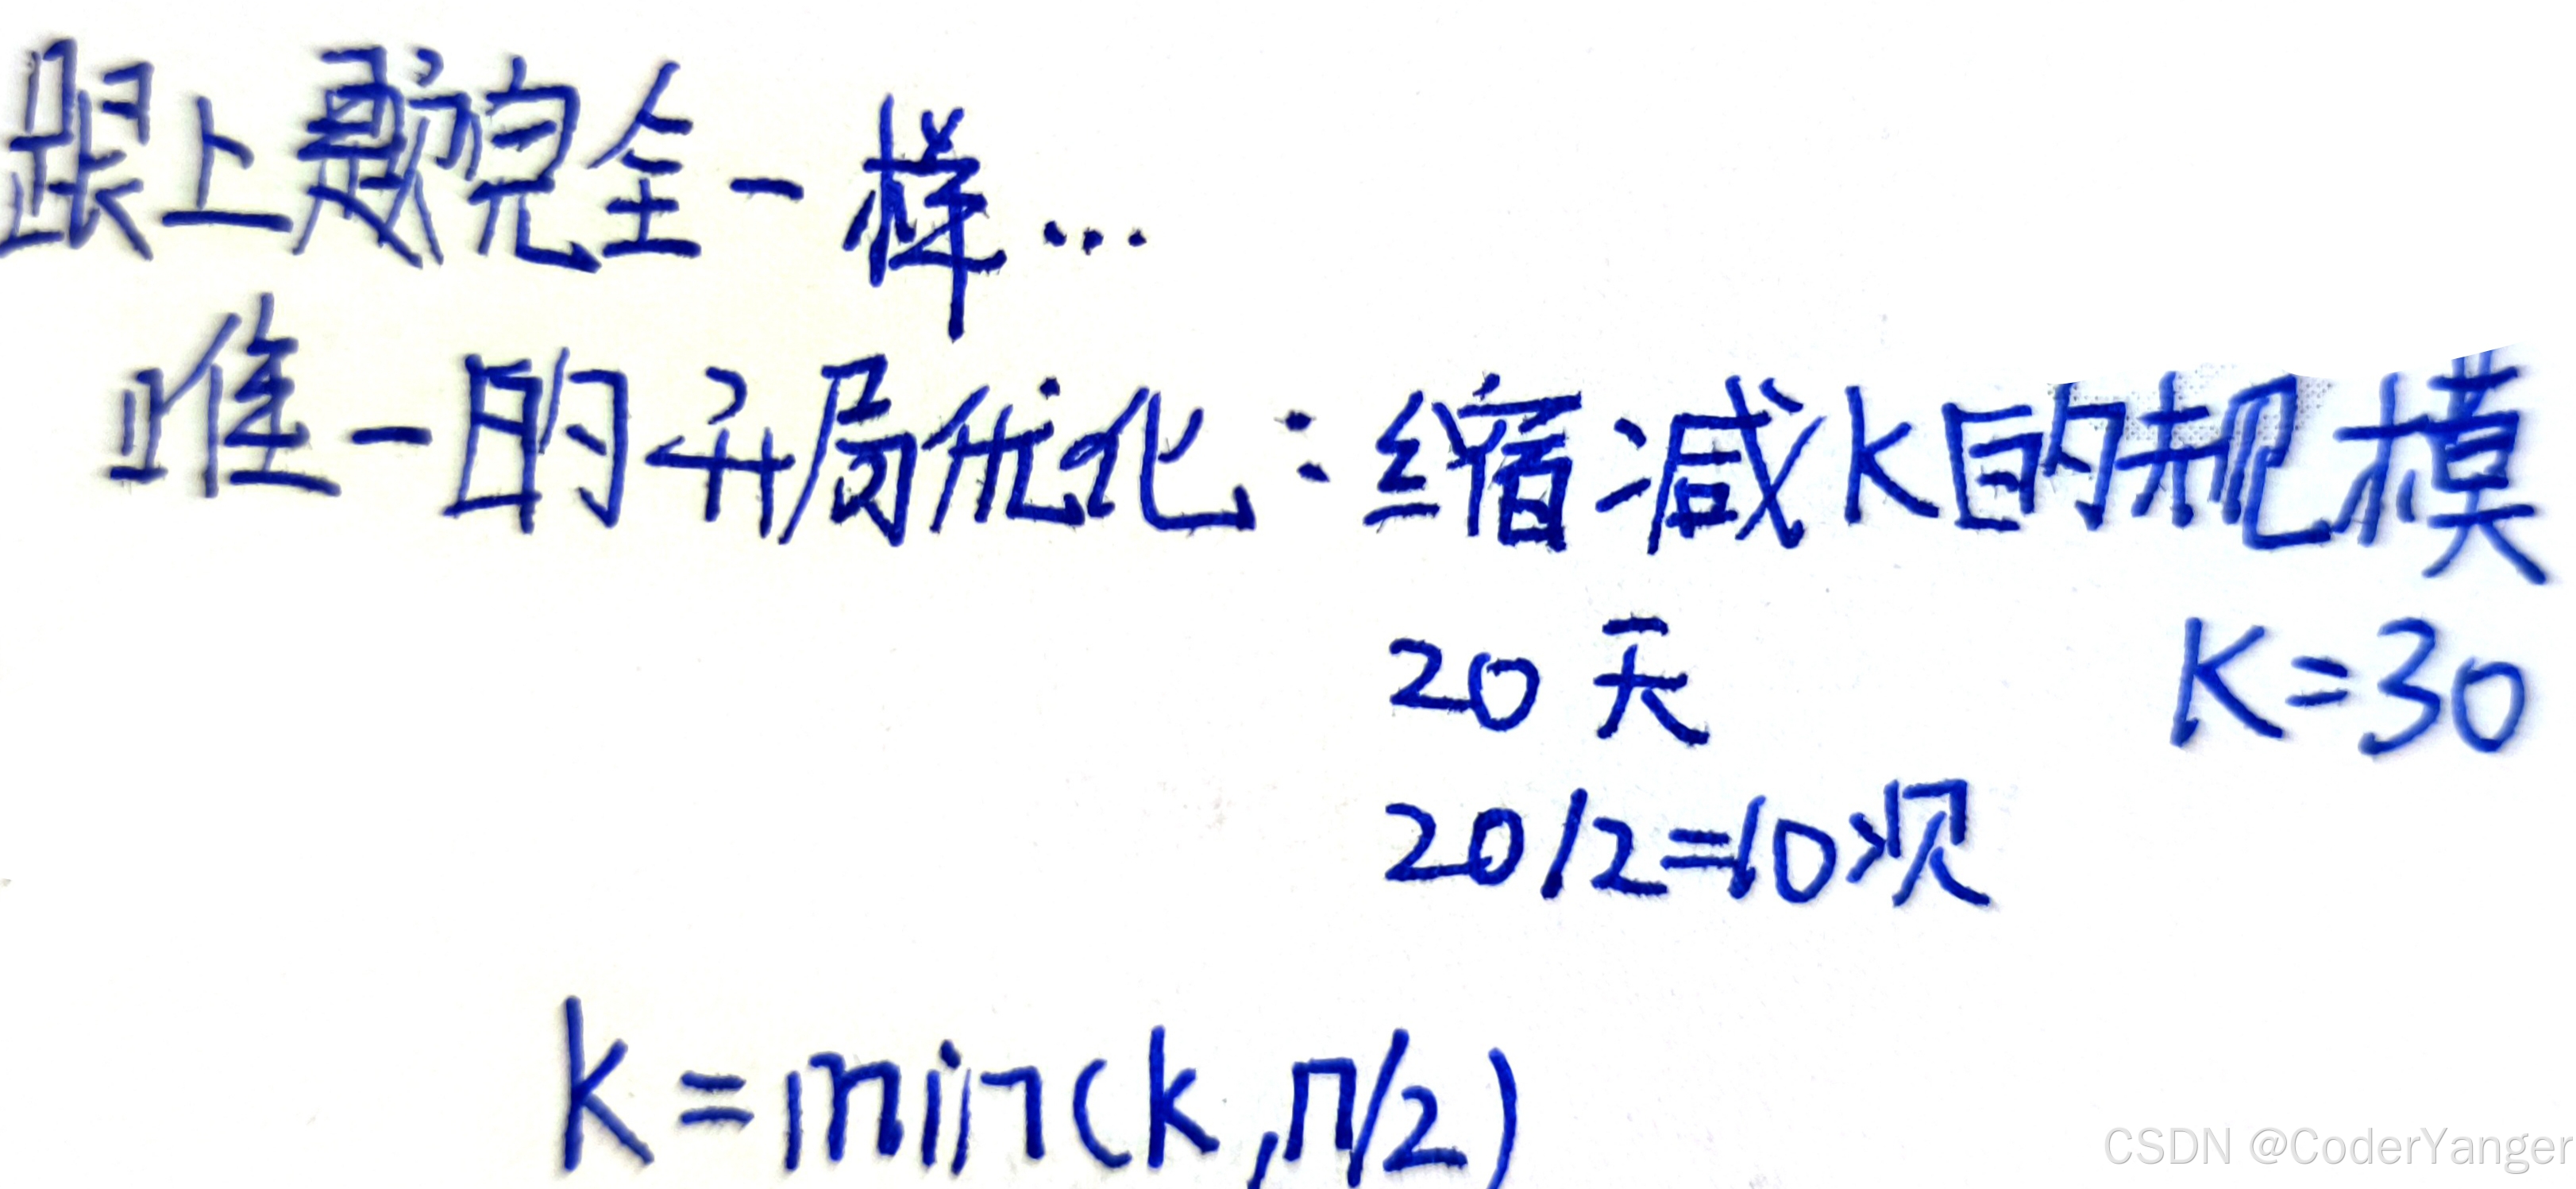 跟上题完全一样...
唯一的开局优化：缩减k的规模
20天 K=30
20/2=10次
k=min(k,n/2)
CSDN @CoderYanger